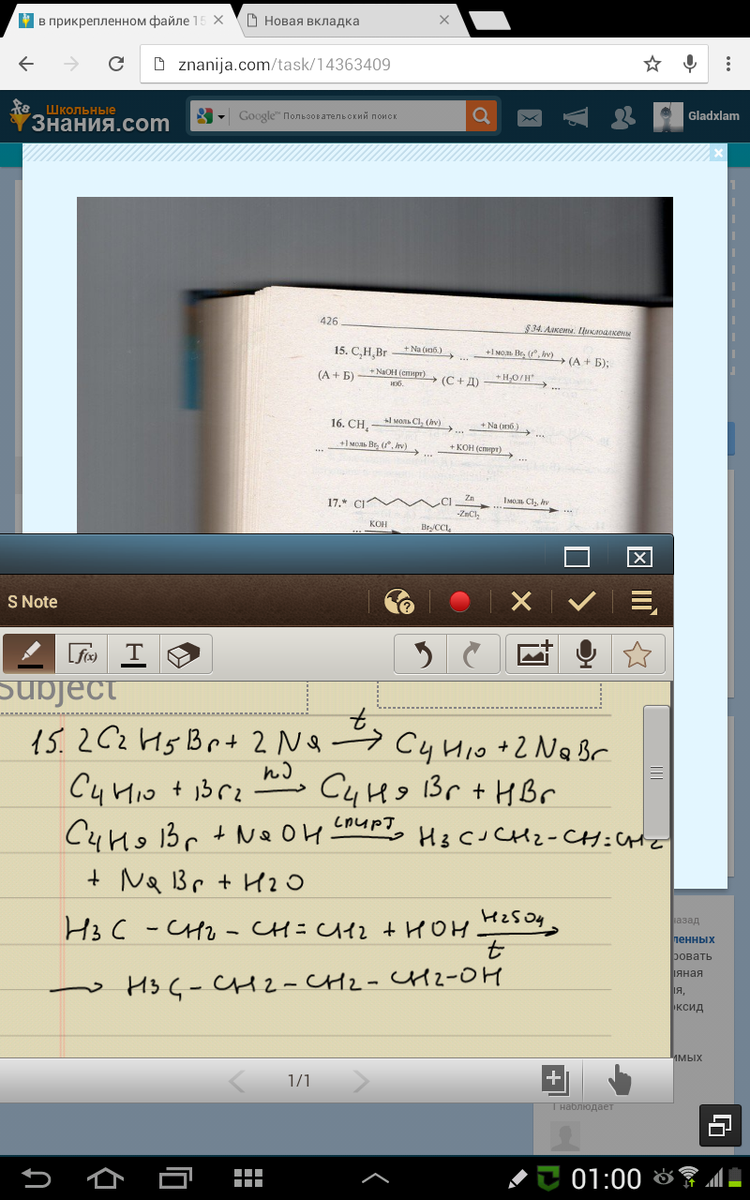 в прикрепленном файле 15
Новая вкладка
znanija.com/task/14363409
Школьные
Знания.com
Google™ Пользовательский поиск
Gladxlam
426
§ 34. Алкены. Циклоалкены
15. C₂H₅Br + Na (изб.) → ... +1 моль Br₂ (t°, hv) → (А + Б);
(А + Б) + NaOH (спирт) изб. → (С + Д) + H₂O / H⁺ → ...
16. CH₄ +1 моль Cl₂ (hv) → ... + Na (изб.) → ...
... +1 моль Br₂ (t°, hv) → ... + KOH (спирт) → ...
17.* Cl Cl Zn -ZnCl₂ → ... 1моль Cl₂, hv → ...
... KOH Br₂/CCl₄
S Note
f(x)
T
Subject
15. 2C2H5Br + 2Na t → C4H10 + 2NaBr
C4H10 + Br2 hν → C4H9Br + HBr
C4H9Br + NaOH спирт → H3C-CH2-CH=CH2
+ NaBr + H2O
H3C-CH2-CH=CH2 + HOH H2SO4 t →
→ H3C-CH2-CH2-CH2-OH
назад
ленных
ровать
ляная
ия,
ксид
имых
1/1
1 наблюдает
01:00